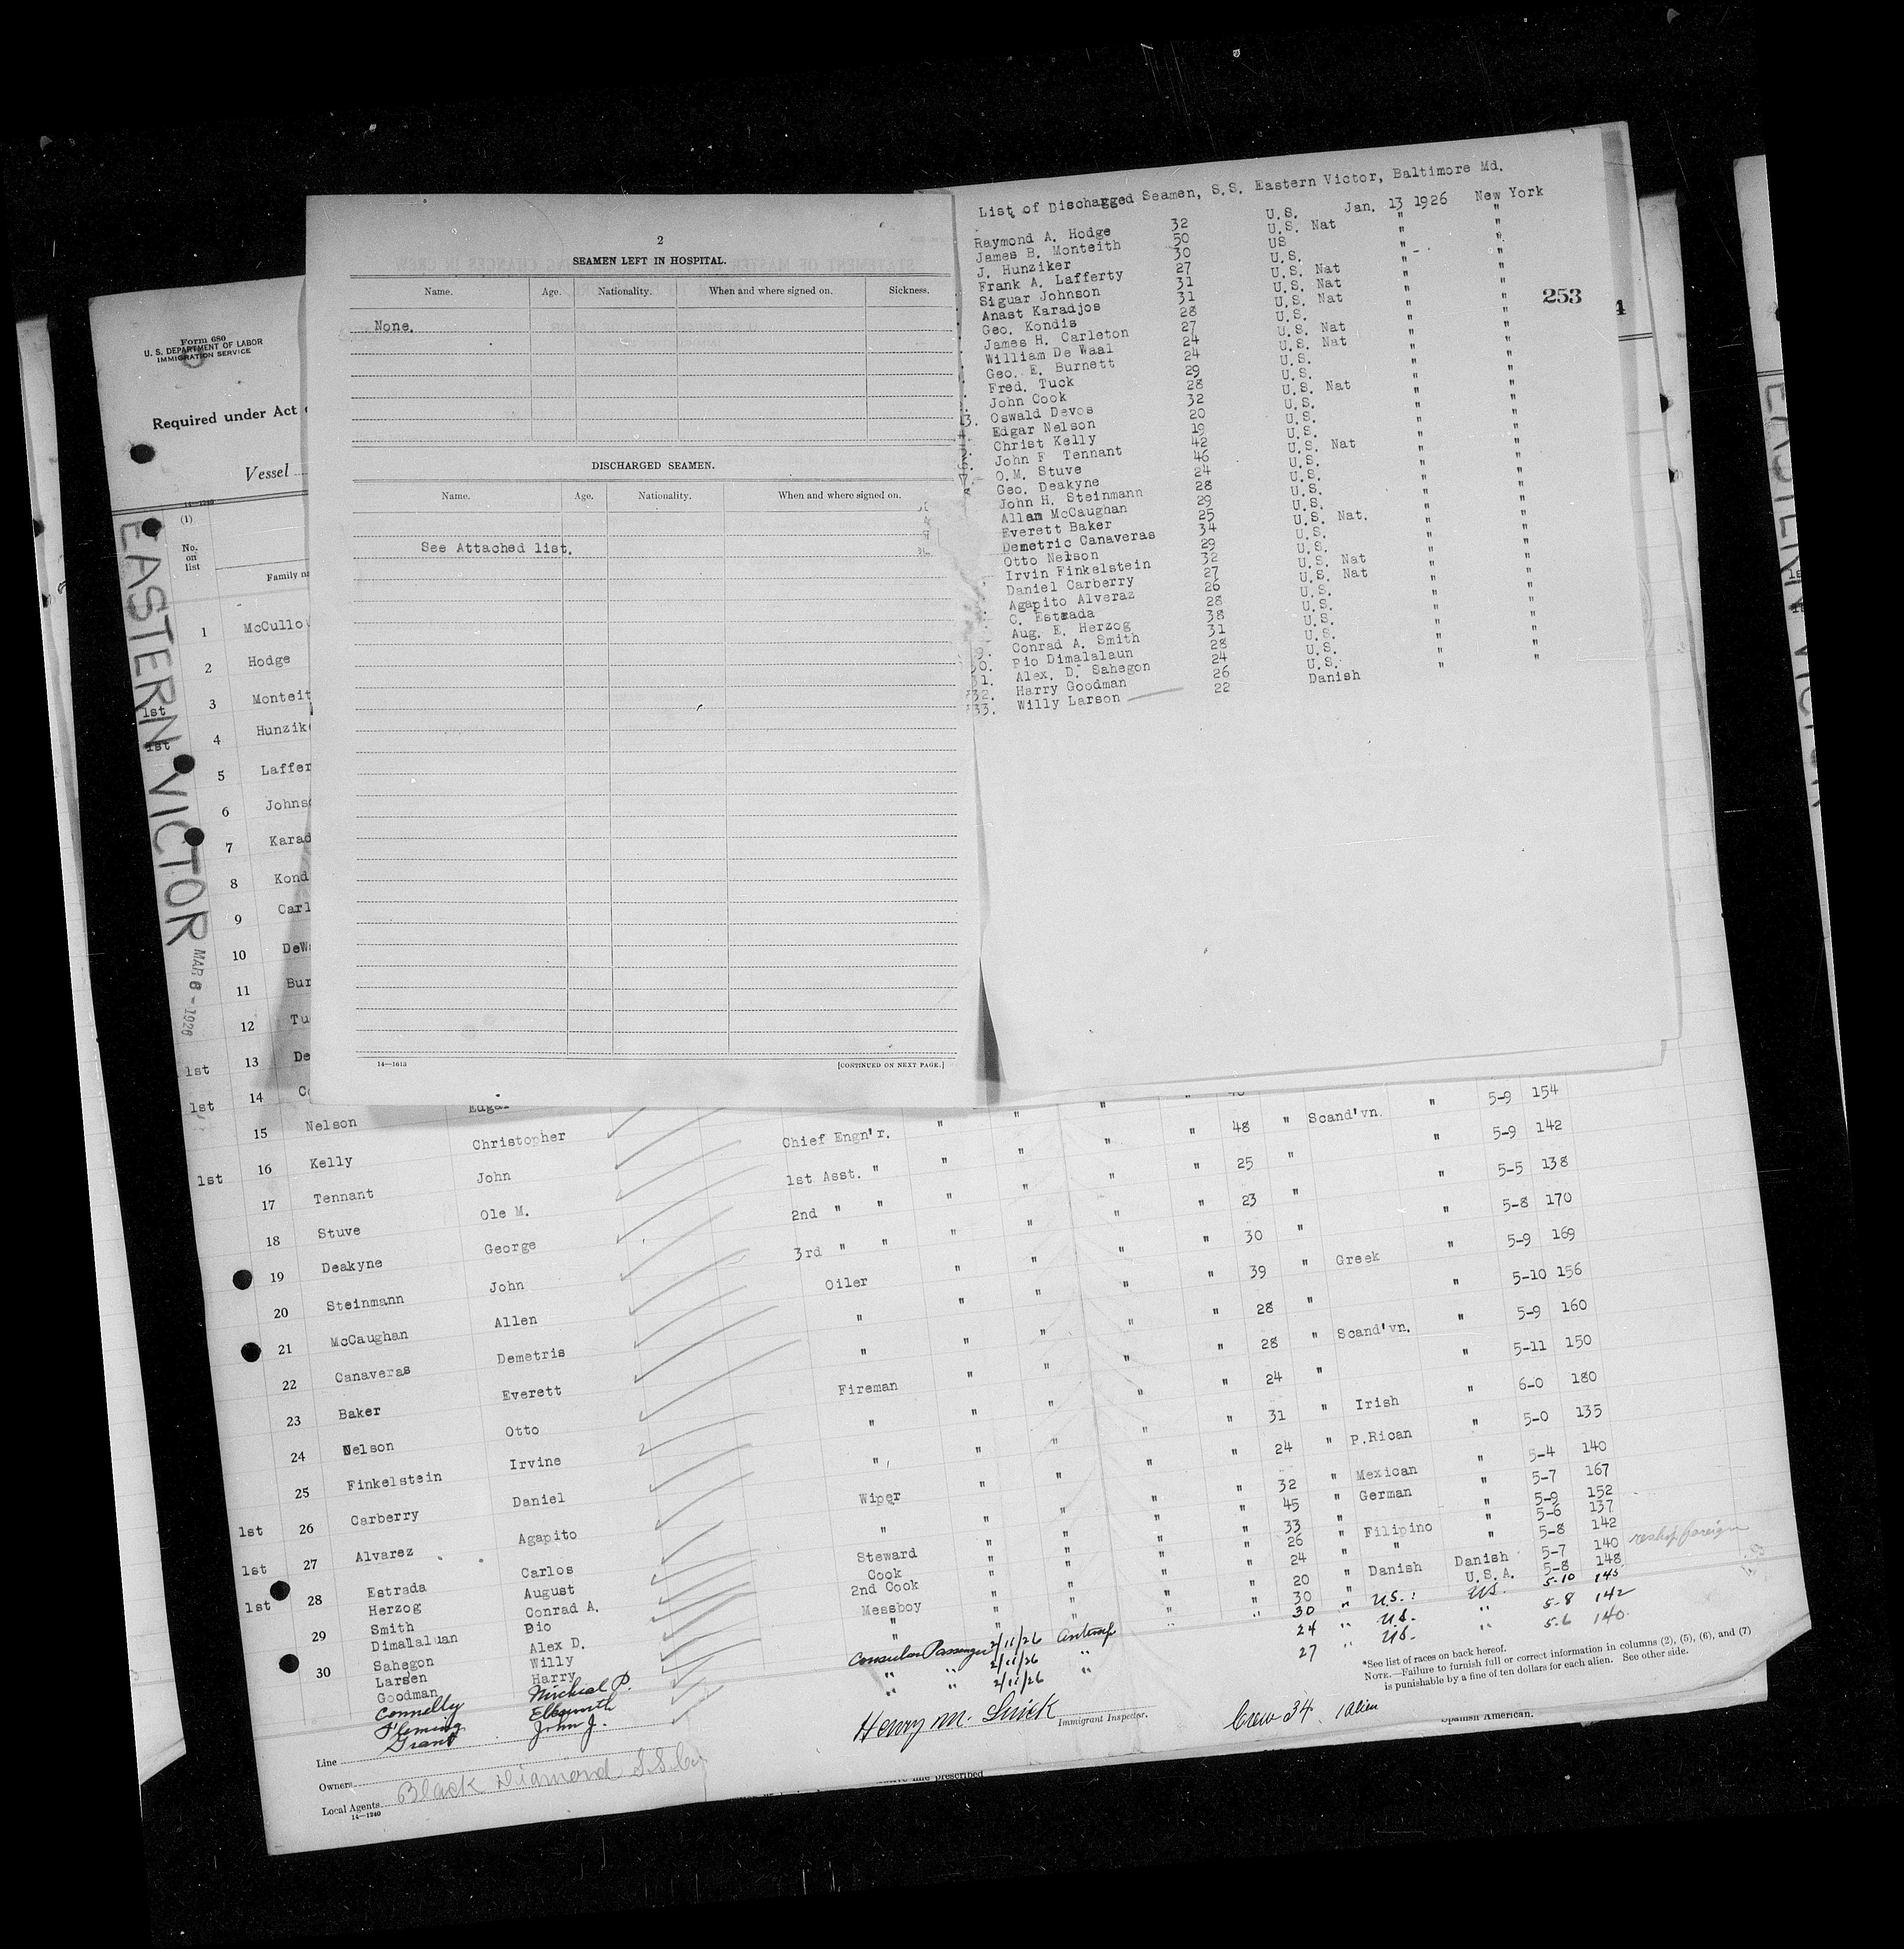 2
SEAMEN LEFT IN HOSPITAL.
Name. Age. Nationality. When and where signed on. Sickness.
None.
DISCHARGED SEAMEN.
Name. Age. Nationality. When and where signed on.
See Attached list.
14—1613 [CONTINUED ON NEXT PAGE.]
List of Discharged Seamen, S.S. Eastern Victor, Baltimore Md.
Raymond A. Hodge 32 U.S. Jan. 13 1926 New York
James B. Monteith 50 U.S. Nat " "
J. Hunziker 30 US " "
Frank A. Lafferty 27 U.S. " "
Siguar Johnson 31 U.S. Nat " "
Anast Karadjos 31 U.S. Nat " "
Geo. Kondis 28 U.S. Nat " "
James H. Carleton 27 U.S. " "
William De Waal 24 U.S. Nat " "
Geo. E. Burnett 24 U.S. Nat " "
Fred. Tuck 29 U.S. " "
John Cook 28 U.S. " "
13. Oswald Devos 32 U.S. Nat " "
Edgar Nelson 20 U.S. " "
Christ Kelly 19 U.S. " "
John F Tennant 42 U.S. " "
O.M. Stuve 46 U.S. Nat " "
Geo. Deakyne 24 U.S. " "
John H. Steinmann 28 U.S. " "
Allan McCaughan 29 U.S. " "
Everett Baker 25 U.S. " "
Demetric Canaveras 34 U.S. Nat. " "
Otto Nelson 29 U.S. " "
Irvin Finkelstein 32 U.S. " "
Daniel Carberry 27 U.S. Nat " "
Agapito Alveraz 26 U.S. Nat " "
C. Estrada 28 U.S. " "
Aug. E. Herzog 38 U.S. " "
9. Conrad A. Smith 31 U.S. " "
30. Pio Dimalalaun 28 U.S. " "
31. Alex. D. Sahegon 24 U.S. " "
32. Harry Goodman 26 U.S. " "
33. Willy Larson 22 Danish " "
253
Form 680
U. S. DEPARTMENT OF LABOR
IMMIGRATION SERVICE
Required under Act
Vessel
14—1240
(1)
No. on list
Family na
EASTERN VICTOR
MAR 8 - 1926
1 McCullo
2 Hodge
1st 3 Monteit
1st 4 Hunzik
5 Laffer
6 Johns
7 Karad
8 Kond
9 Carl
10 DeW
11 Bur
12 Tu
1st 13 De
1st 14 C
15 Nelson Edgar
1st 16 Kelly Christopher
17 Tennant John Chief Engn'r.
18 Stuve Ole M. 1st Asst. "
19 Deakyne George 2nd " "
20 Steinmann John 3rd " "
21 McCaughan Allen Oiler
22 Canaveras Demetris "
23 Baker Everett "
24 Nelson Otto Fireman
25 Finkelstein Irvine "
1st 26 Carberry Daniel "
1st 27 Alvarez Agapito Wiper
1st 28 Estrada Carlos "
Herzog August Steward
29 Smith Conrad A. Cook
Dimalaluan Pio 2nd Cook
30 Sahegon Alex D. Messboy
Larsen Willy "
Goodman Harry "
Connelly Micheal P. Consular Passenger 2/11/26 Antwerp
Fleming Ellsworth " " 2/11/26 "
Grant John J. " " 2/11/26 "
" 5-9 154
48 " Scand'vn. " 5-9 142
25 " " 5-5 138
23 " " 5-8 170
30 " " 5-9 169
39 " Greek " 5-10 156
28 " " 5-9 160
28 " Scand'vn. " 5-11 150
24 " " 6-0 180
31 " Irish " 5-0 135
24 " P.Rican " 5-4 140
32 " Mexican " 5-7 167
45 " German " 5-9 152
33 " " 5-6 137
26 " Filipino " 5-8 142
24 " " " 5-7 140
20 " Danish Danish 5-8 148
30 " U.S.A. 5-10 145
30 " U.S. U.S. 5-8 142
24 " U.S. " 5-6 140
27 " U.S. "
reship foreign
*See list of races on back hereof.
NOTE.—Failure to furnish full or correct information in columns (2), (5), (6), and (7)
is punishable by a fine of ten dollars for each alien. See other side.
Immigrant Inspector.
Crew 34 1 alien
Line
Owners
Local Agents Black Diamond S.S. Co
14—1240
Spanish American.
prescribed